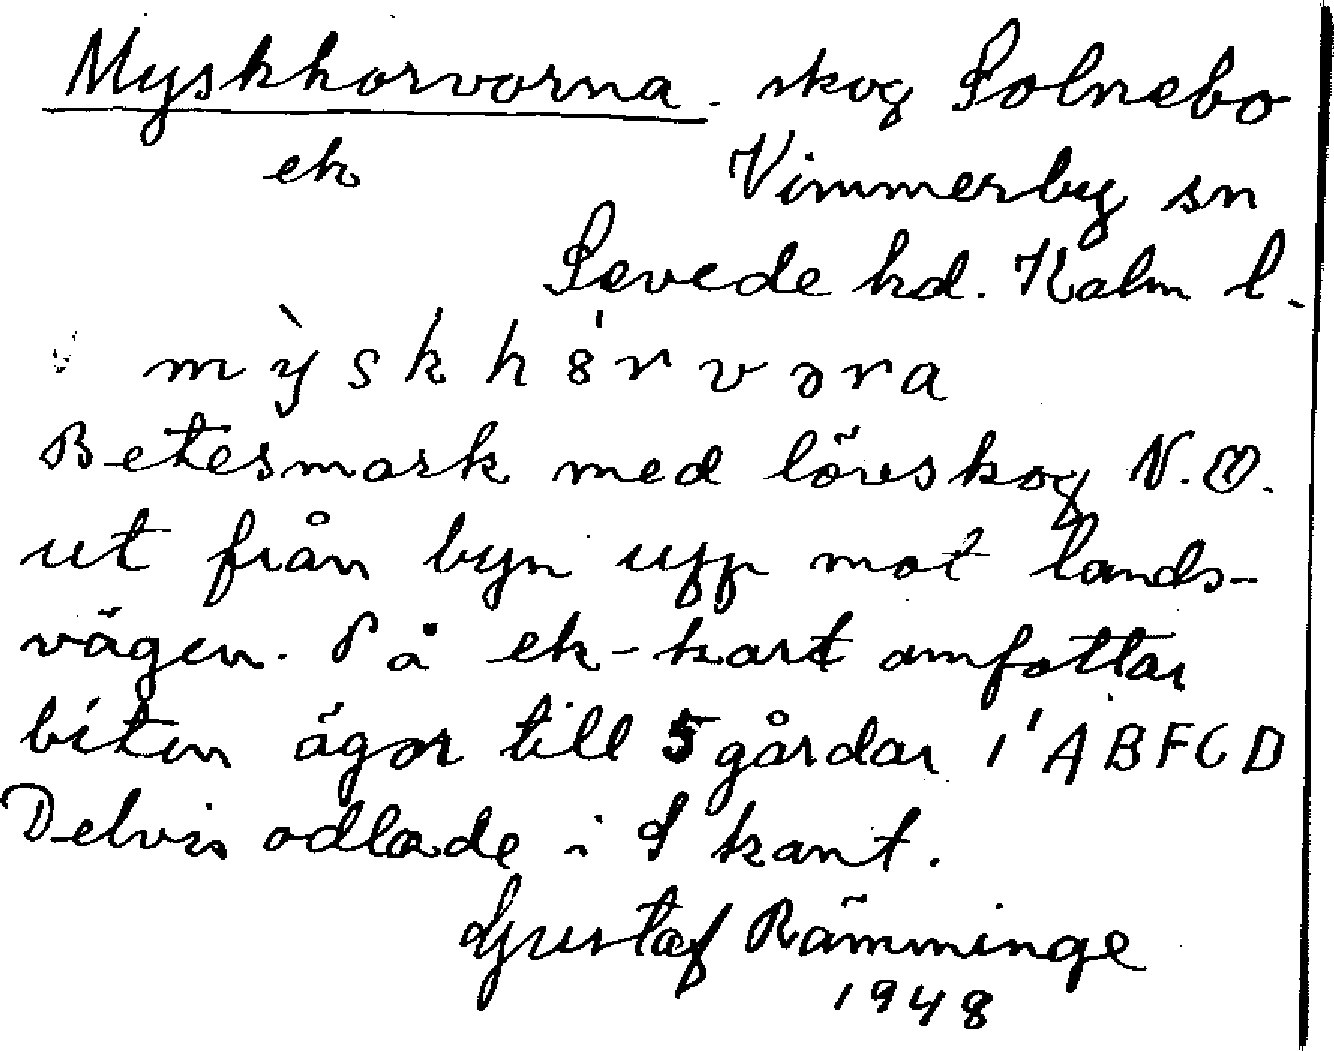 Myskhorvorna. skog Solnebo
ek Vimmerby sn
Sevede hd. Kalm l.
mỳskhȯrvəra
Betesmark med lövskog N.Ö.
ut från byn upp mot lands-
vägen. På ek-kart omfattar
biten ägor till 5 gårdar i ABFCD
Delvis odlade i S kant.
Gustaf Rämminge
1948